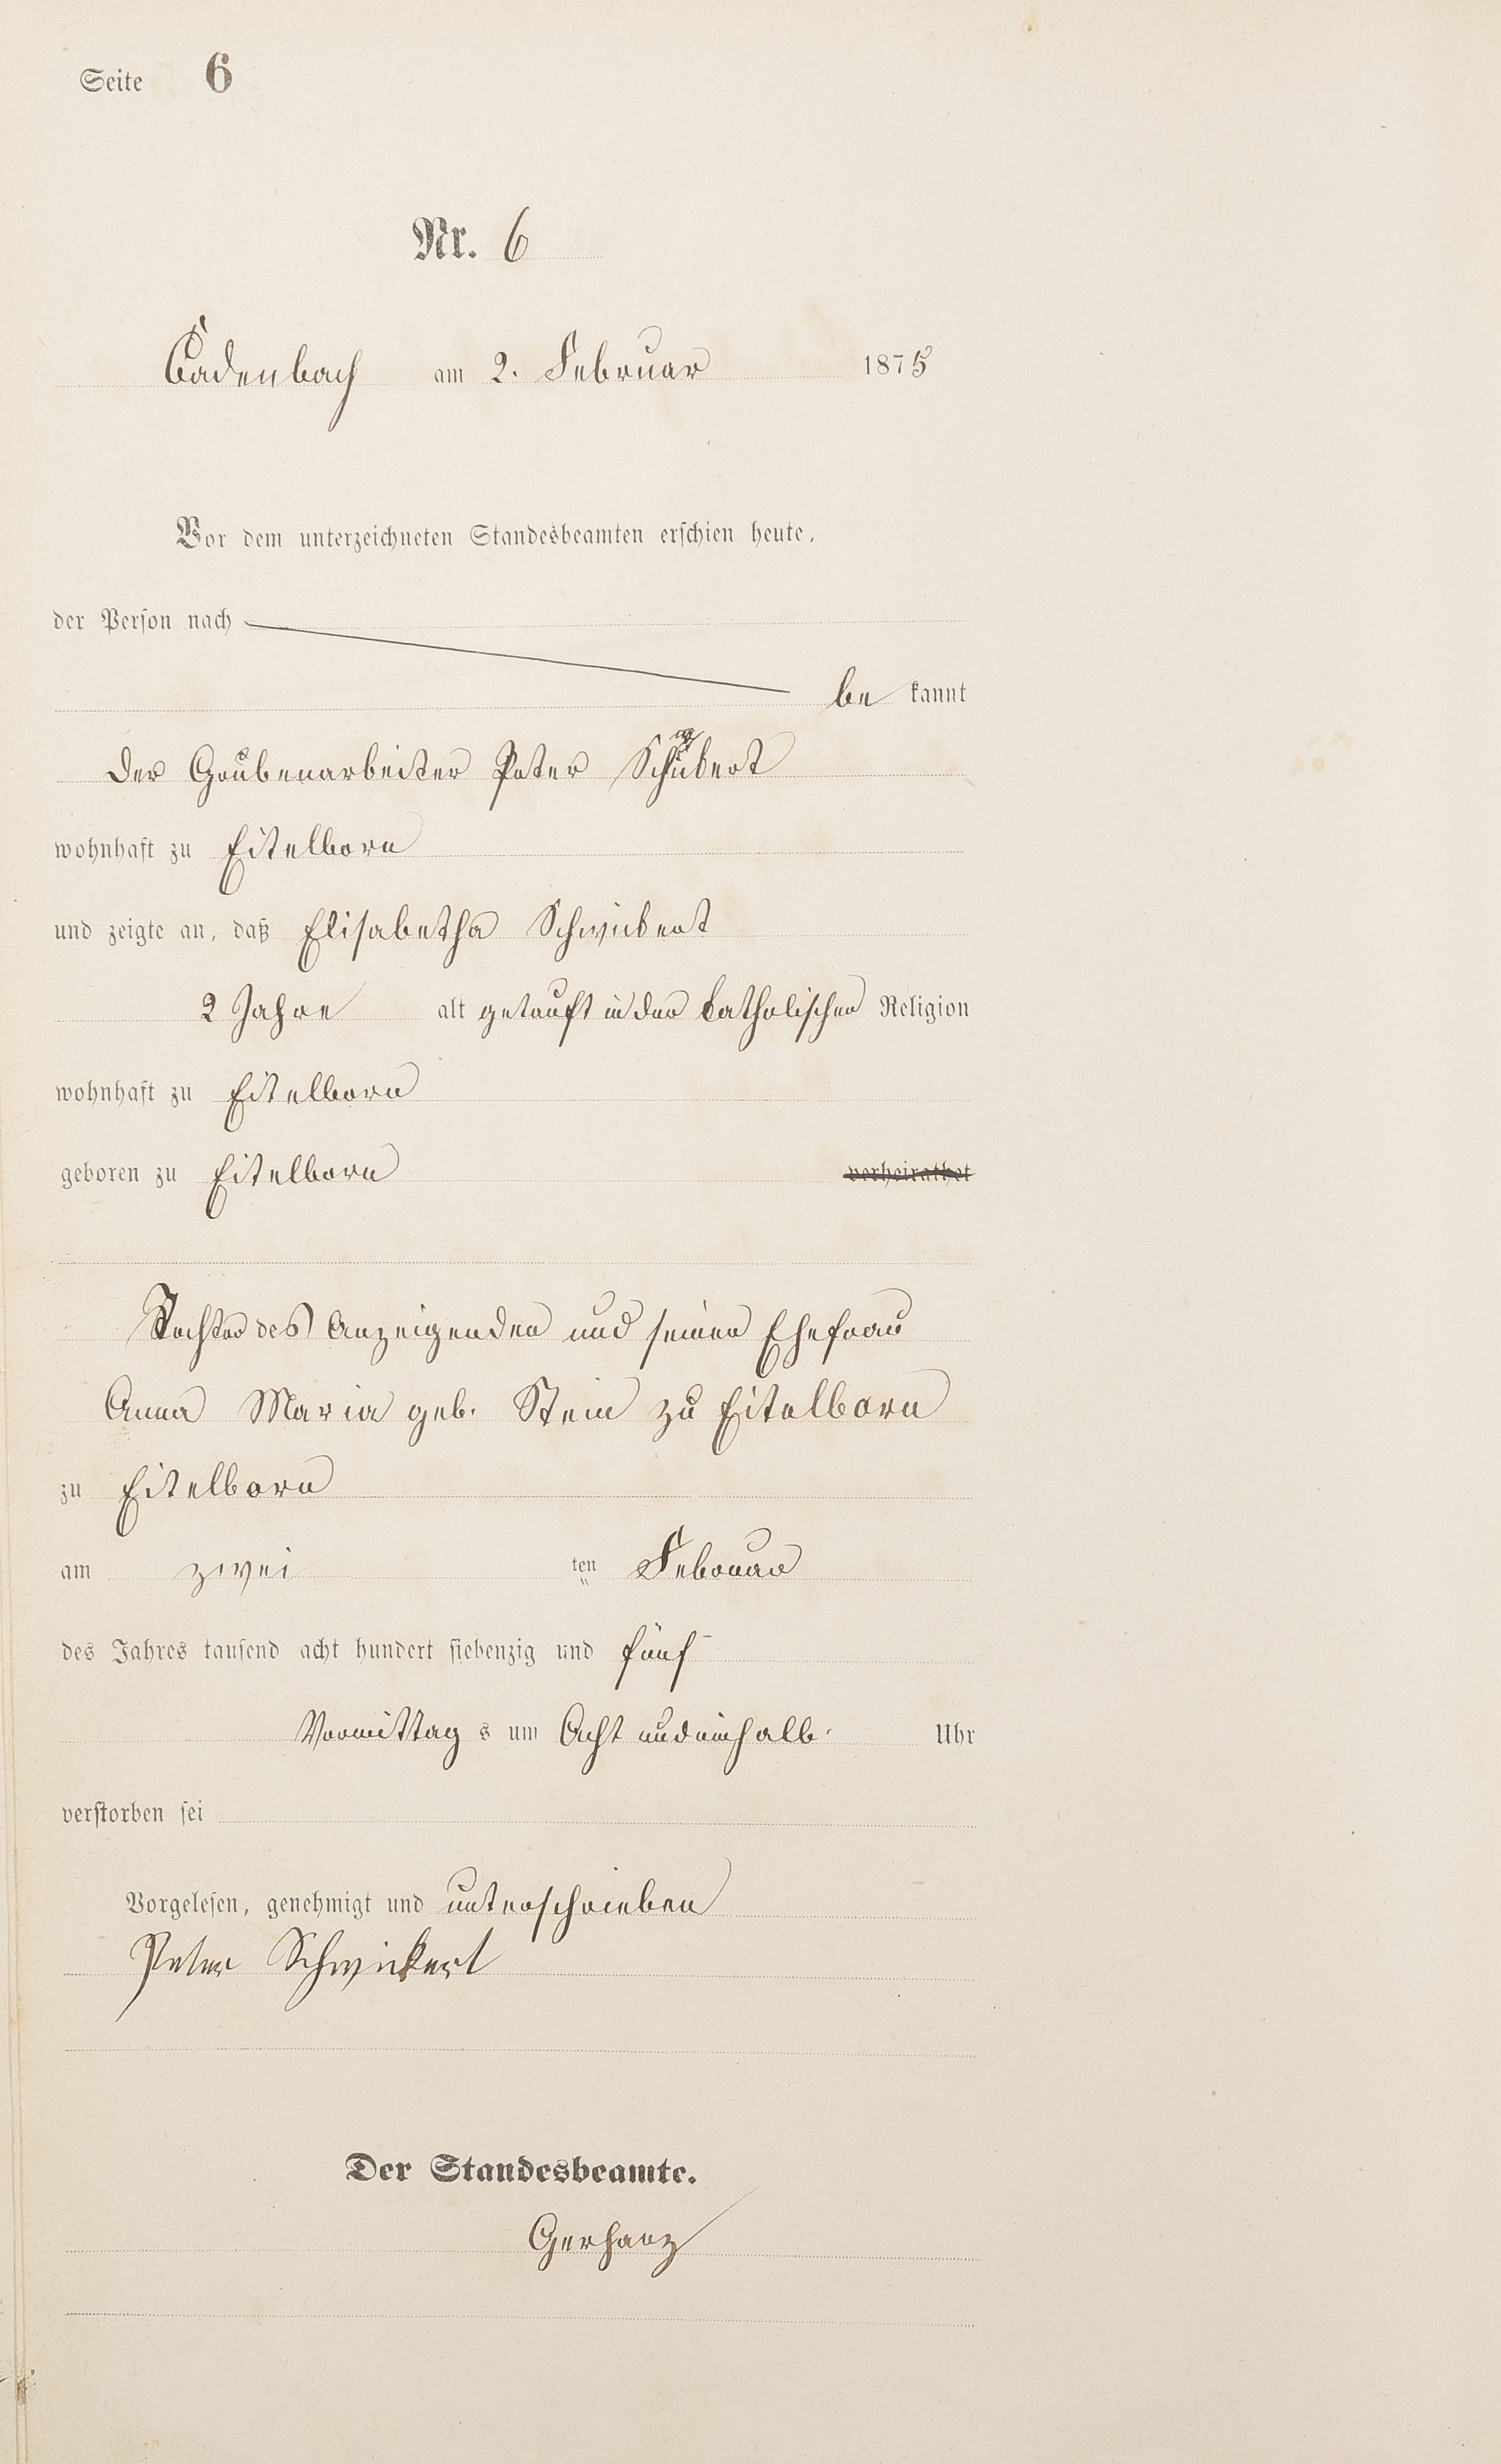 Seite 6
Nr. 6
Cadenbach am 2. Februar 1875
Vor dem unterzeichneten Standesbeamten erschien heute,
der Person nach
be kannt
der Grubenarbeiter Peter Schwikert
wohnhaft zu Eitelborn
und zeigte an, daß Elisabetha Schwickert
2 Jahre alt getauft in der katholischen Religion
wohnhaft zu Eitelborn
geboren zu Eitelborn verheirathet
Tochter des Anzeigenden und seiner Ehefrau
Anna Maria geb. Stein zu Eitelborn
zu Eitelborn
am zwei ten Februar
des Jahres tausend acht hundert siebenzig und fünf
Vormittag s um Acht und einhalb Uhr
verstorben sei
Vorgelesen, genehmigt und unterschrieben
Peter Schwickert
Der Standesbeamte.
Gerharz